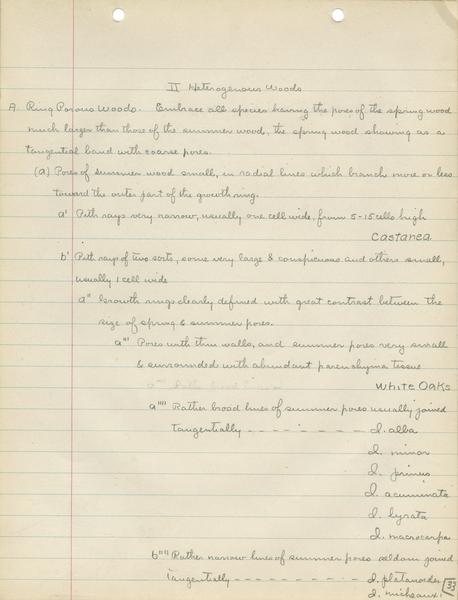 II Heterogenous Woods
A. Ring Porous Woods. Embrace all species having the pores of the spring wood
much larger than those of the summer wood, the spring wood showing as a
tangential band with coarse pores.
(a) Pores of summer wood small, in radial lines which branch more or less
toward the outer part of the growth ring.
a' Pith rays very narrow, usually one cell wide, from 5-15 cells high
Castanea
b' Pith rays of two sorts, some very large & conspicuous and others small,
usually 1 cell wide
a" Growth rings clearly defined with great contrast between the
size of spring & summer pores.
a''' Pores with thin walls, and summer pores very small
& surrounded with abundant parenchyma tissue
White Oaks
a'''' Rather broad lines of summer pores usually joined
tangentially - - - - - - - - Q. alba
Q. minor
Q. prinus
Q. acuminata
Q. lyrata
Q. macrocarpa
b'''' Rather narrow lines of summer pores seldom joined
tangentially - - - - - - - - Q. platanoides
Q. michauxi
33